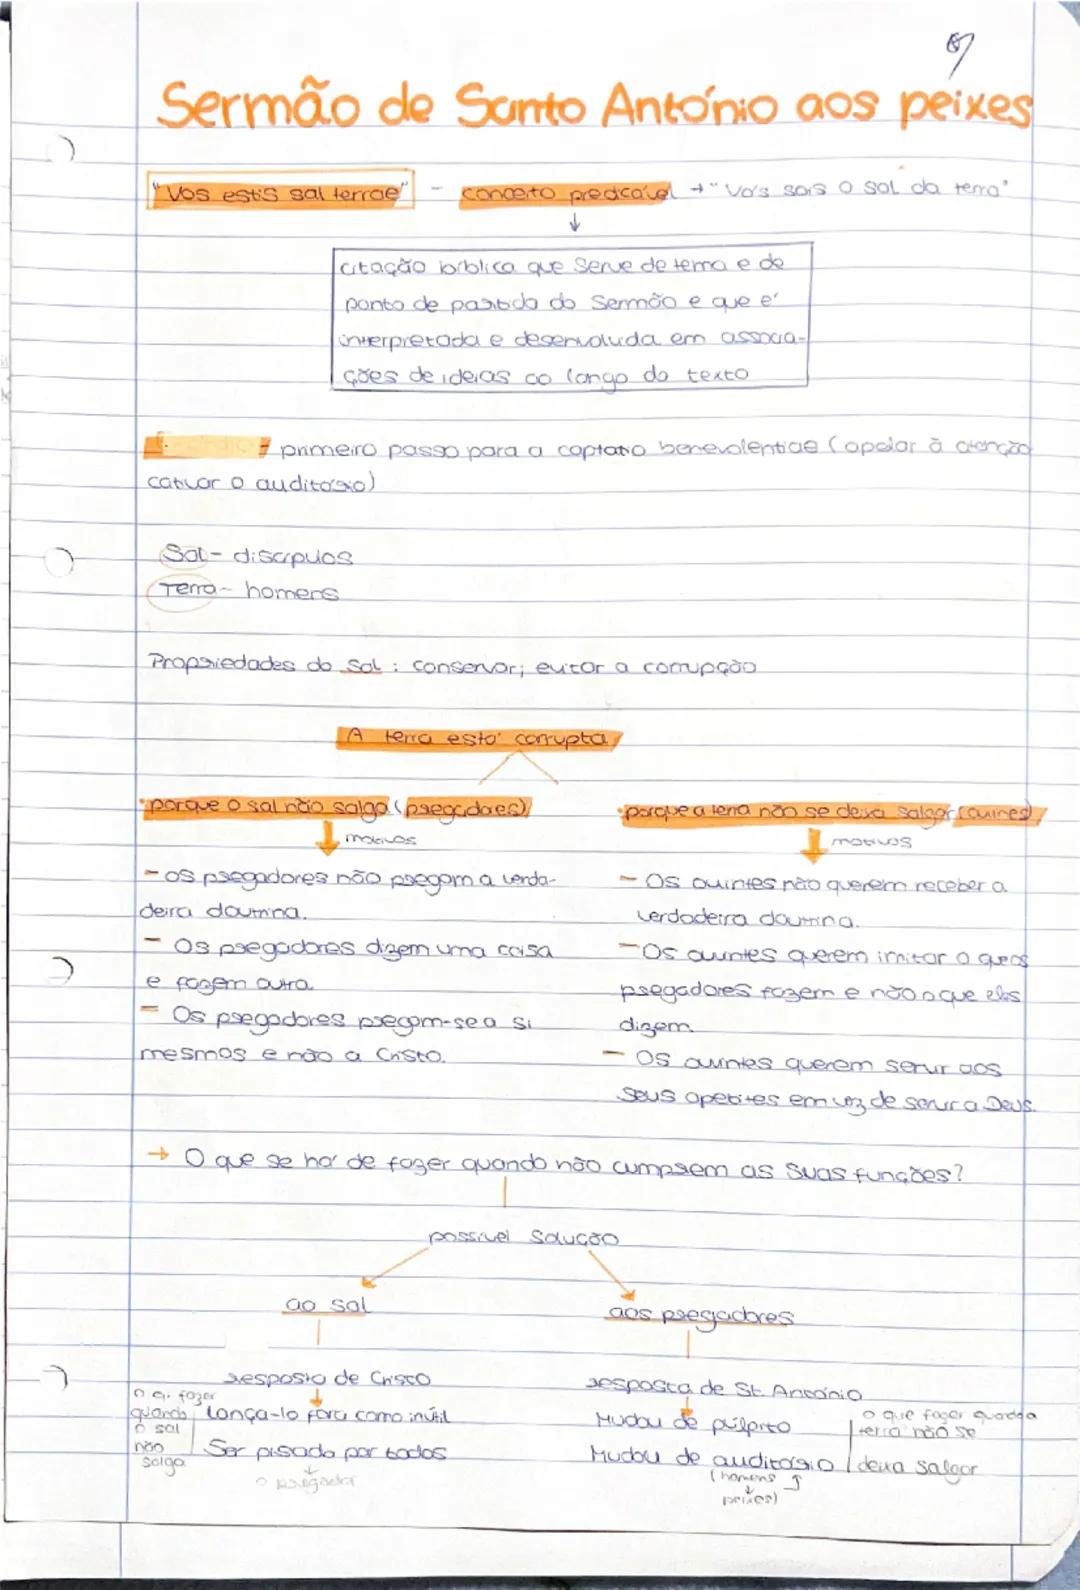 Sermão de Santo António aos peixes
"Vos estis sal terrae" - conceito predicável → "Vós sois o sal da terra"
citação bíblica que serve de tema e de
ponto de partida do Sermão e que é
interpretada e desenvolvida em associa-
ções de ideias ao longo do texto
primeiro passo para a captatio benevolentiae (apelar à atenção
cativar o auditório)
Sal - discípulos
Terra - homens
Propriedades do sal : conservar; evitar a corrupção
A terra está corrupta
• porque o sal não salga (pregadores)
• porque a terra não se deixa salgar (ouvintes)
motivos
motivos
- os pregadores não pregam a verda-
deira doutrina.
- Os pregadores dizem uma coisa
e fazem outra.
- Os pregadores pregam-se a si
mesmos e não a Cristo.
- Os ouvintes não querem receber a
verdadeira doutrina.
- Os ouvintes querem imitar o que os
pregadores fazem e não o que eles
dizem.
- Os ouvintes querem servir aos
seus apetites em vez de servir a Deus.
→ O que se há de fazer quando não cumprem as suas funções?
possível solução
ao sal
aos pregadores
resposta de Cristo
resposta de St. António
o q. fazer
quando
o sal
não
salga
Lança-lo fora como inútil
Ser pisado por todos
o pregador
Mudou de púlpito
Mudou de auditório
(homens
peixes)
o que fazer quando a
terra não se
deixa salgar